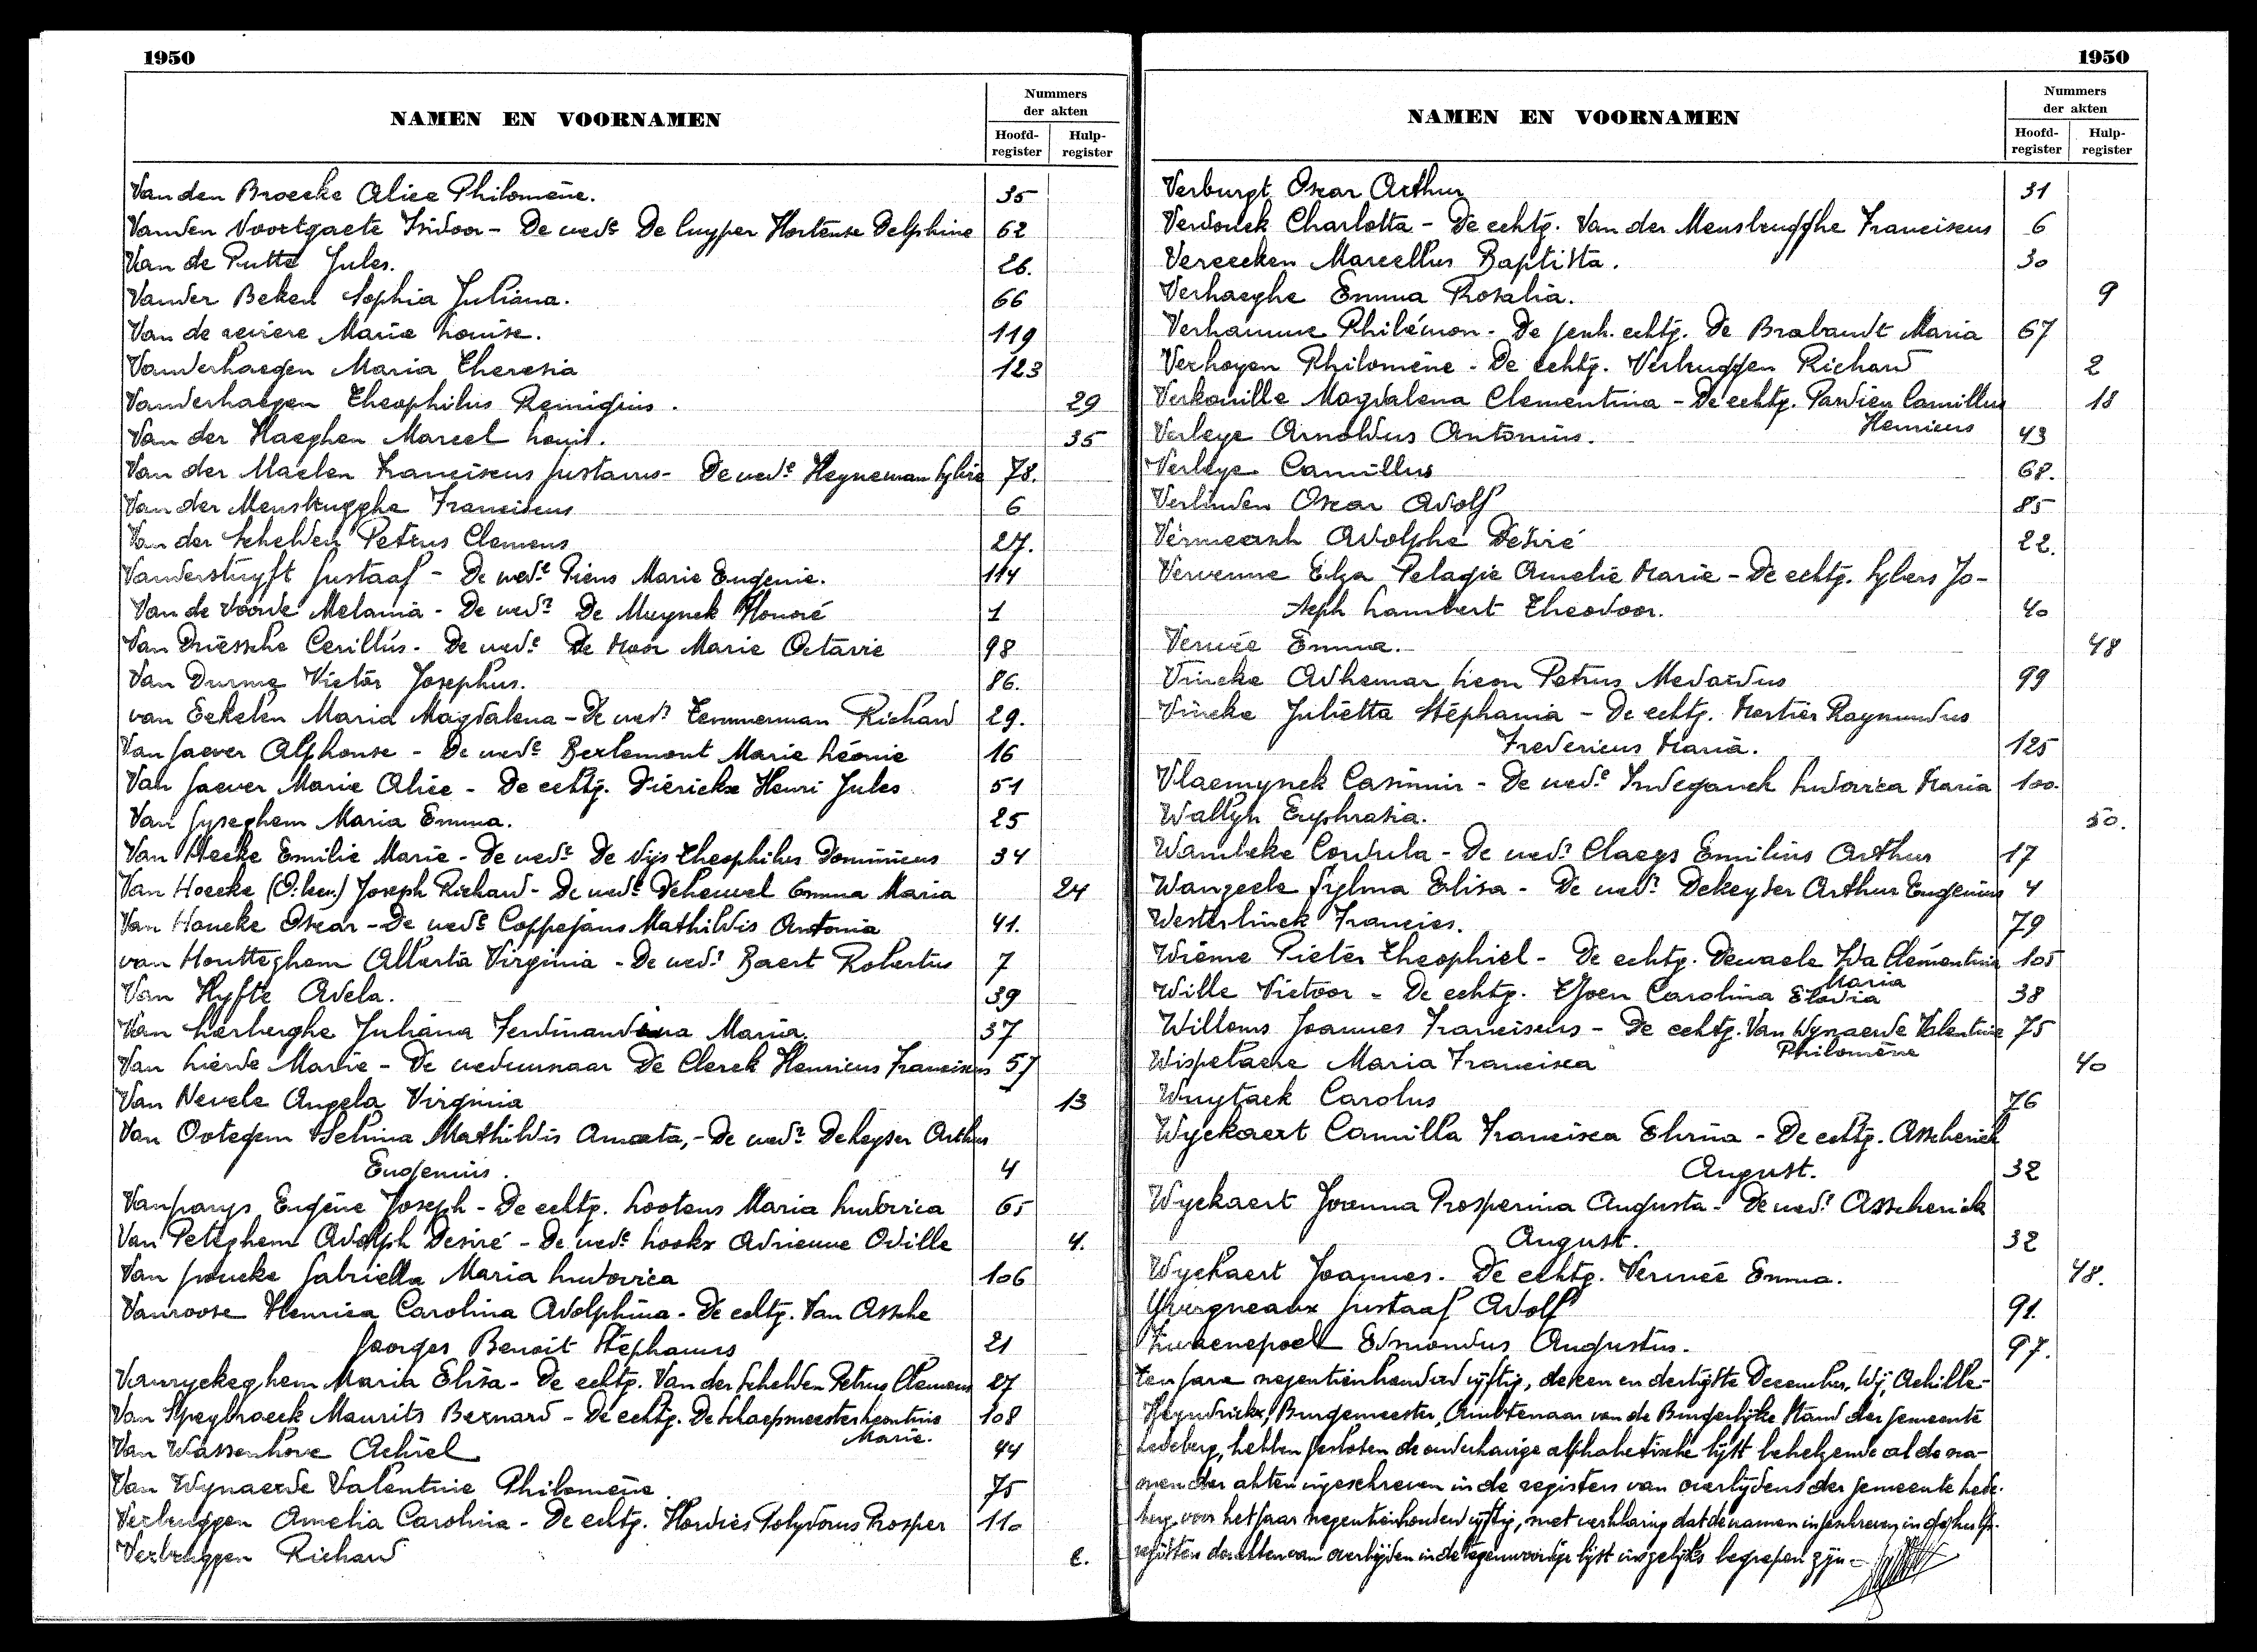 1950
NAMEN EN VOORNAMEN
Nummers
der akten
Hoofd-
register
Hulp-
register
Van den Broecke Alice Philomène. 35
Vanden Voortgaete Isidoor - De wede De Cuyper Hortense Delphine 62
Van de Putte Jules. 26.
Vander Beken Sophia Juliana. 66
Van de reviere Marie Louise. 119
Vanderhaegen Maria Theresia 123
Vanderhaegen Theophilus Remigius. 29
Van der Haeghen Marcel Louis. 35
Van der Maelen Franciscus Gustavus - De wede Heyneman Sylvie 78.
Van der Mensbrugghe Franciscus 6
Van der Schelden Petrus Clemens 27.
Vanderstuyft Gustaaf - De wede Piens Marie Eugenie. 114
Van de Voorde Melania - De wedr De Muynck Honoré 1
Van Driessche Cerillus - De wede De Moor Marie Octavie 98
Van Durme Victor Josephus. 86.
van Eekelen Maria Magdalena - De wedr Temmerman Richard 29.
Van Gaever Alphonse - De wede Berlemont Marie Léonie 16
Van Gaever Marie Alice - De echtg. Dierickx Henri Jules 51
Van Gyseghem Maria Emma. 25
Van Hecke Emilie Marie - De wedr De Vijs Theophilus Dominicus 34
Van Hoecke Joseph Richard - De wede Deheuvel Emma Maria 24
Van Houcke Oscar - De wede Coppejans Mathildis Antonia 41.
van Houtteghem Alberta Virginia - De wedr Baert Robertus 7
Van Hyfte Adela. 39
Van Larberghe Juliana Ferdinandina Maria. 37
Van Lierde Marie - De weduwnaar De Clerck Henricus Franciscus 57
Van Nevele Angela Virginia 13
Van Ootegem Selina Mathildis Amata, - De wedr Dekeyser Arthur
Eugenius. 4
Vanparys Eugène Joseph - De echtg. Lootens Maria Ludovica 65
Van Peteghem Adolph Desiré - De wede Lookx Adrienne Odille 4.
Van Poucke Gabriella Maria Ludovica 106
Vanroose Henrica Carolina Adolphina - De echtg. Van Assche
Georges Benoit Stéphanus 21
Vanryckeghem Maria Elisa - De echtg. Van der Schelden Petrus Clemens 27
Van Speybroeck Maurits Bernard - De echtg. De Schaepmeester Leontine 108
Marie.
Van Wassenhove Achiel 44
Van Wynaerde Valentine Philomène. 75
Verbruggen Amelia Carolina - De echtg. Hordies Polydorus Prosper 110
Verbruggen Richard 2.
1950
NAMEN EN VOORNAMEN
Nummers
der akten
Hoofd-
register
Hulp-
register
Verburgt Oscar Arthur 31
Verdonck Charlotta - De echtg. Van der Mensbrugghe Franciscus 6
Vereecken Marcellus Baptista. 30
Verhaeghe Emma Rosalia. 9
Verhamme Philémon - De echtg. De Brabandt Maria 67
Verhoyen Philomène - De echtg. Verbruggen Richard 2
Verkouille Magdalena Clementina - De echtg. Pardieu Camillus 18
Henricus
Verleye Arnoldus Antonius. 43
Verleye Camillus 68.
Verlinden Oscar Adolf 85
Vermeersch Adolphe Désiré 22.
Vervenne Elza Pelagie Amelie Marie - De echtg. Sybers Jo-
seph Lambert Theodoor. 40
Verwée Emma. 48
Vincke Adhemar Leon Petrus Medardus 99
Vincke Julietta Stéphania - De echtg. Mortier Raymundus
Fredericus Maria. 125
Vlaemynck Casimir - De wede Indeganck Ludovica Maria 100.
Wallyn Euphrasia. 50.
Wambeke Cordula - De wedr Claeys Emilius Arthur 17
Wanzeele Sylma Elisa - De wedr Dekeyser Arthur Eugenius 4
Westerlinck Francies. 79
Wième Pieter Theophiel - De echtg. Dewaele Ida Clementina 105
Maria
Wille Victoor - De echtg. Elodia 38
Willems Joannes Franciscus - De echtg. Van Wynaerde Valentine 75
Philomène
Wispelaere Maria Francisca 40
Wuytack Carolus 76
Wyckaert Camilla Francisca Elvina - De echtg. Asscherick
August. 32
Wyckaert Joanna Prosperina Augusta - De wedr Asscherick
August. 32
Wyckaert Joannes. De echtg. Verwée Emma. 48.
Yvergneaux Gustaaf Adolf 91.
Zwaenepoel Edmondus Augustus. 97.
Ten jare negentienhonderd vijftig, de een en dertigste December, Wij, Achille
Heyndrickx, Burgemeester, Ambtenaar van de Burgerlijke Stand der gemeente
Ledeberg, hebben gesloten de onderhavige alphabetische lijst behelzende al de na-
men der akten ingeschreven in de registers van overlijdens der gemeente Lede-
berg, voor het jaar negentienhonderd vijftig, met verklaring dat de namen ingeschreven in de hulp-
registers der akten van overlijden in de tegenwoordige lijst insgelijks begrepen zijn -